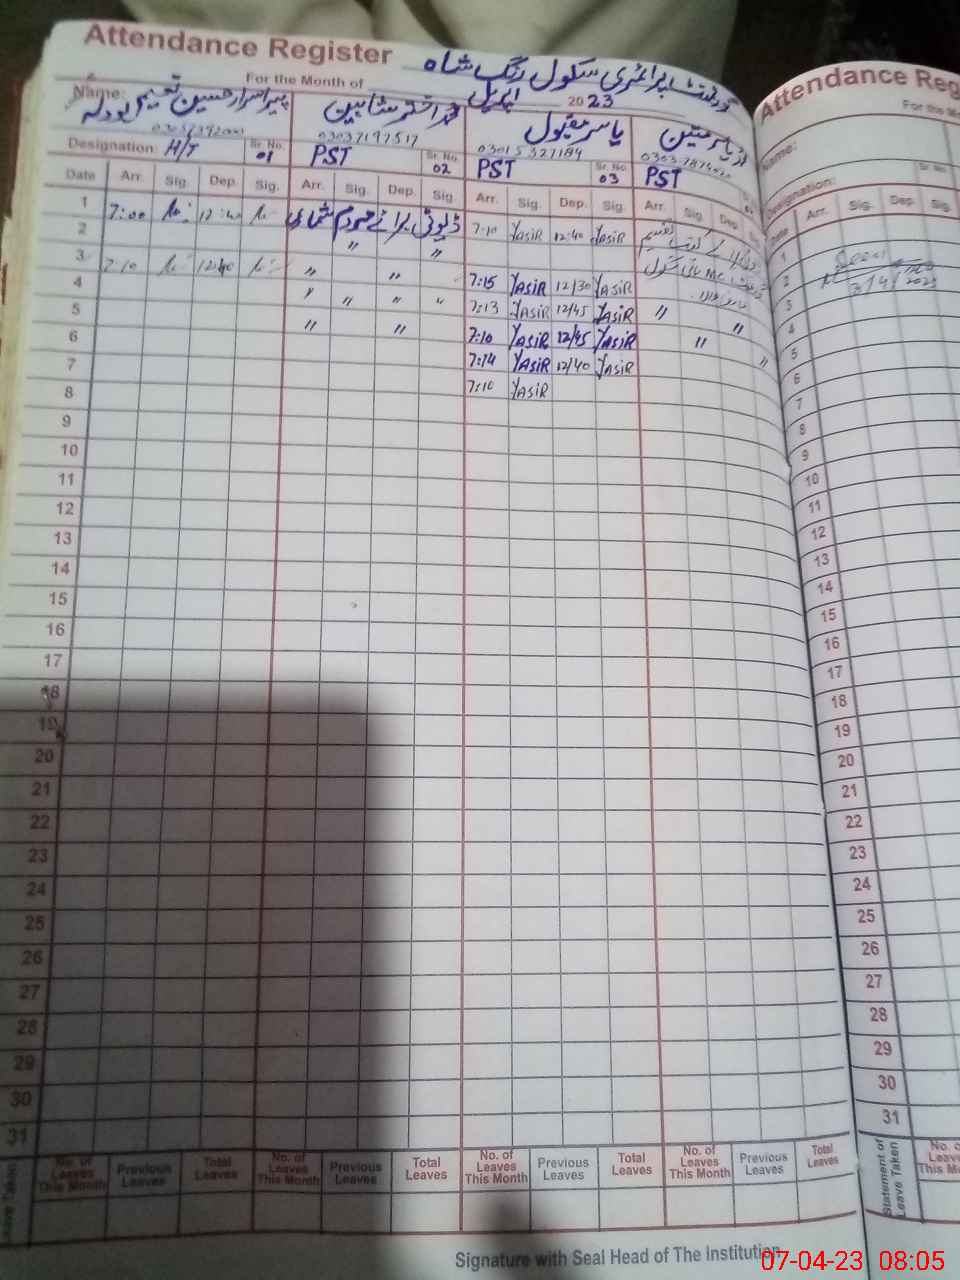 Attendance Register گورنمنٹ پرائمری سکول رنگ شاہ
For the Month of اپریل 2023
Name: پیر اسرار حسین نعیم بودلہ
اختر شاہین
یاسر مقبول
یاسر متین
03037197517
03015327184
Designation: H/T Sr. No. 01 PST Sr. No. 02 PST Sr. No. 03 PST
Date Arr. Sig. Dep. Sig. Arr. Sig. Dep. Sig. Arr. Sig. Dep. Sig. Arr. Sig. Dep.
1 7:00 12:40 ڈیوٹی برائے مردم شماری 7:10 YASIR 12:40 YASIR
2 " "
3 7:10 12:40 " " 7:15 YASIR 12/30 YASIR
4 " " " " 7:13 YASIR 12/45 YASIR " "
5 " " 7:10 YASIR 12/45 YASIR "
6 7:14 YASIR 12/40 YASIR "
7 7:10 YASIR
8
9
10
11
12
13
14
15
16
17
18
19
20
21
22
23
24
25
26
27
28
29
30
31
Leave Taken
No. of Leaves This Month Previous Leaves Total Leaves No. of Leaves This Month Previous Leaves Total Leaves No. of Leaves This Month Previous Leaves Total Leaves No. of Leaves This Month Previous Leaves Total Leaves
Signature with Seal Head of The Institution
Attendance Reg
For the M
Name:
Designation:
Date Arr. Sig. Dep. Sig.
1
2 Seen
3 3/4/2023
4
5
6
7
8
9
10
11
12
13
14
15
16
17
18
19
20
21
22
23
24
25
26
27
28
29
30
31
Statement of Leave Taken
No. o
Leave
This Mo
07-04-23 08:05